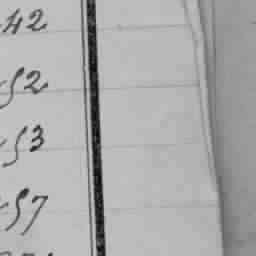 42
52
53
57